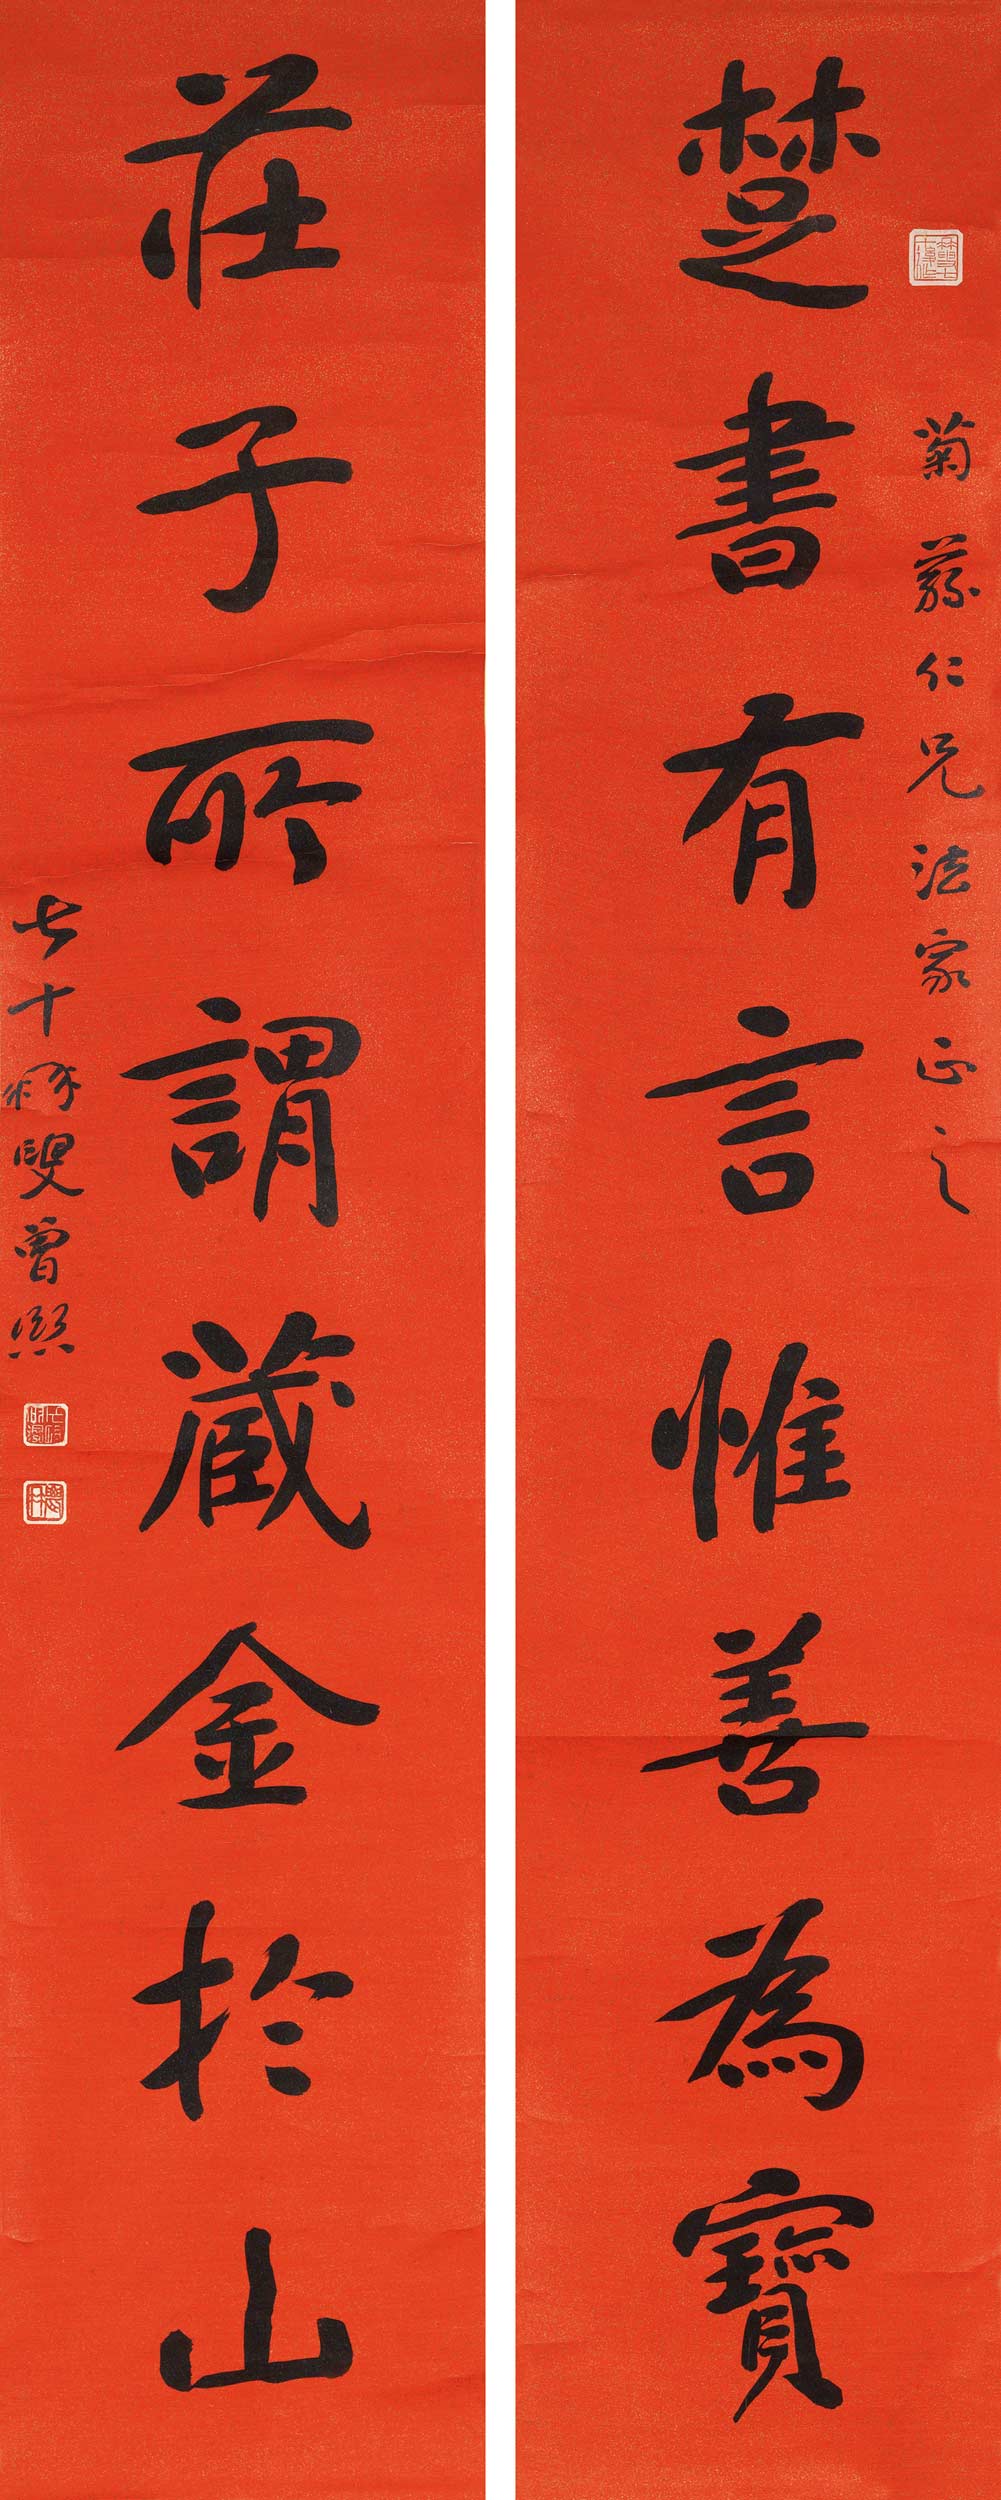 菊蓀仁兄法家正之
楚書有言惟善為寶
莊子所謂藏金於山
七十㽔叟曾熙